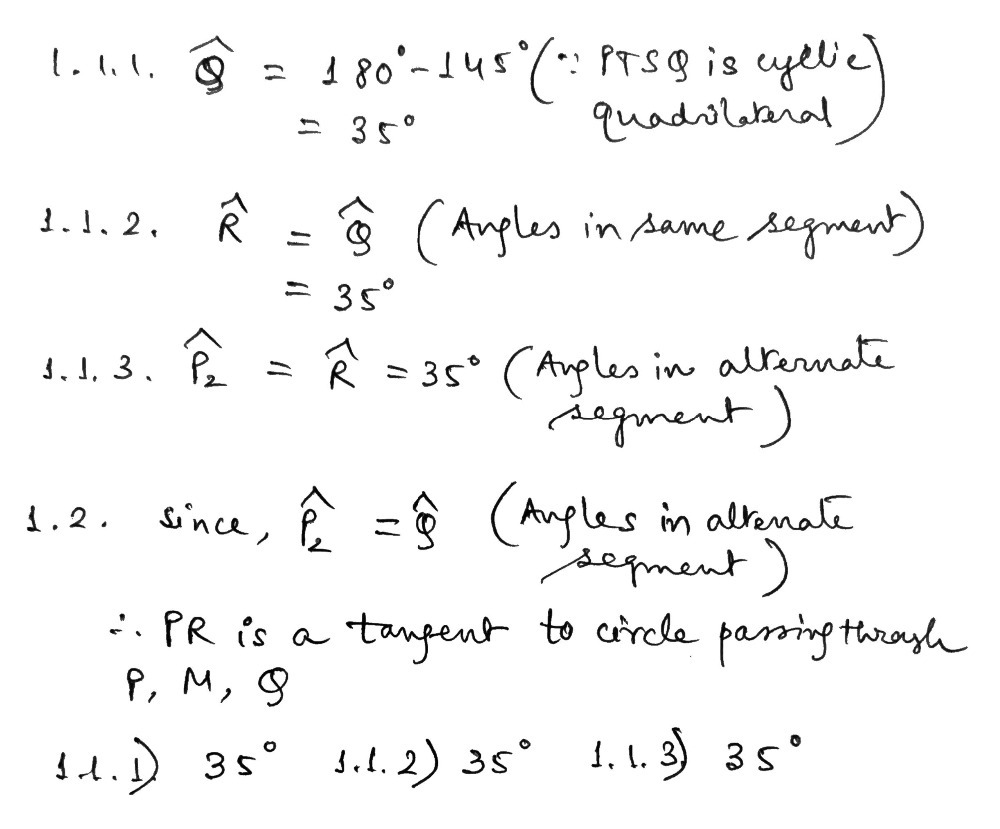 1.1.1. Q̂ = 180° - 145° (∵ PTSQ is cyclic
= 35° quadrilateral)
1.1.2. R̂ = Q̂ (Angles in same segment)
= 35°
1.1.3. P̂₂ = R̂ = 35° (Angles in alternate
segment)
1.2. since, P̂₂ = Q̂ (Angles in altenate
segment)
∴ PR is a tangent to circle passing through
P, M, Q
1.1.1) 35° 1.1.2) 35° 1.1.3) 35°